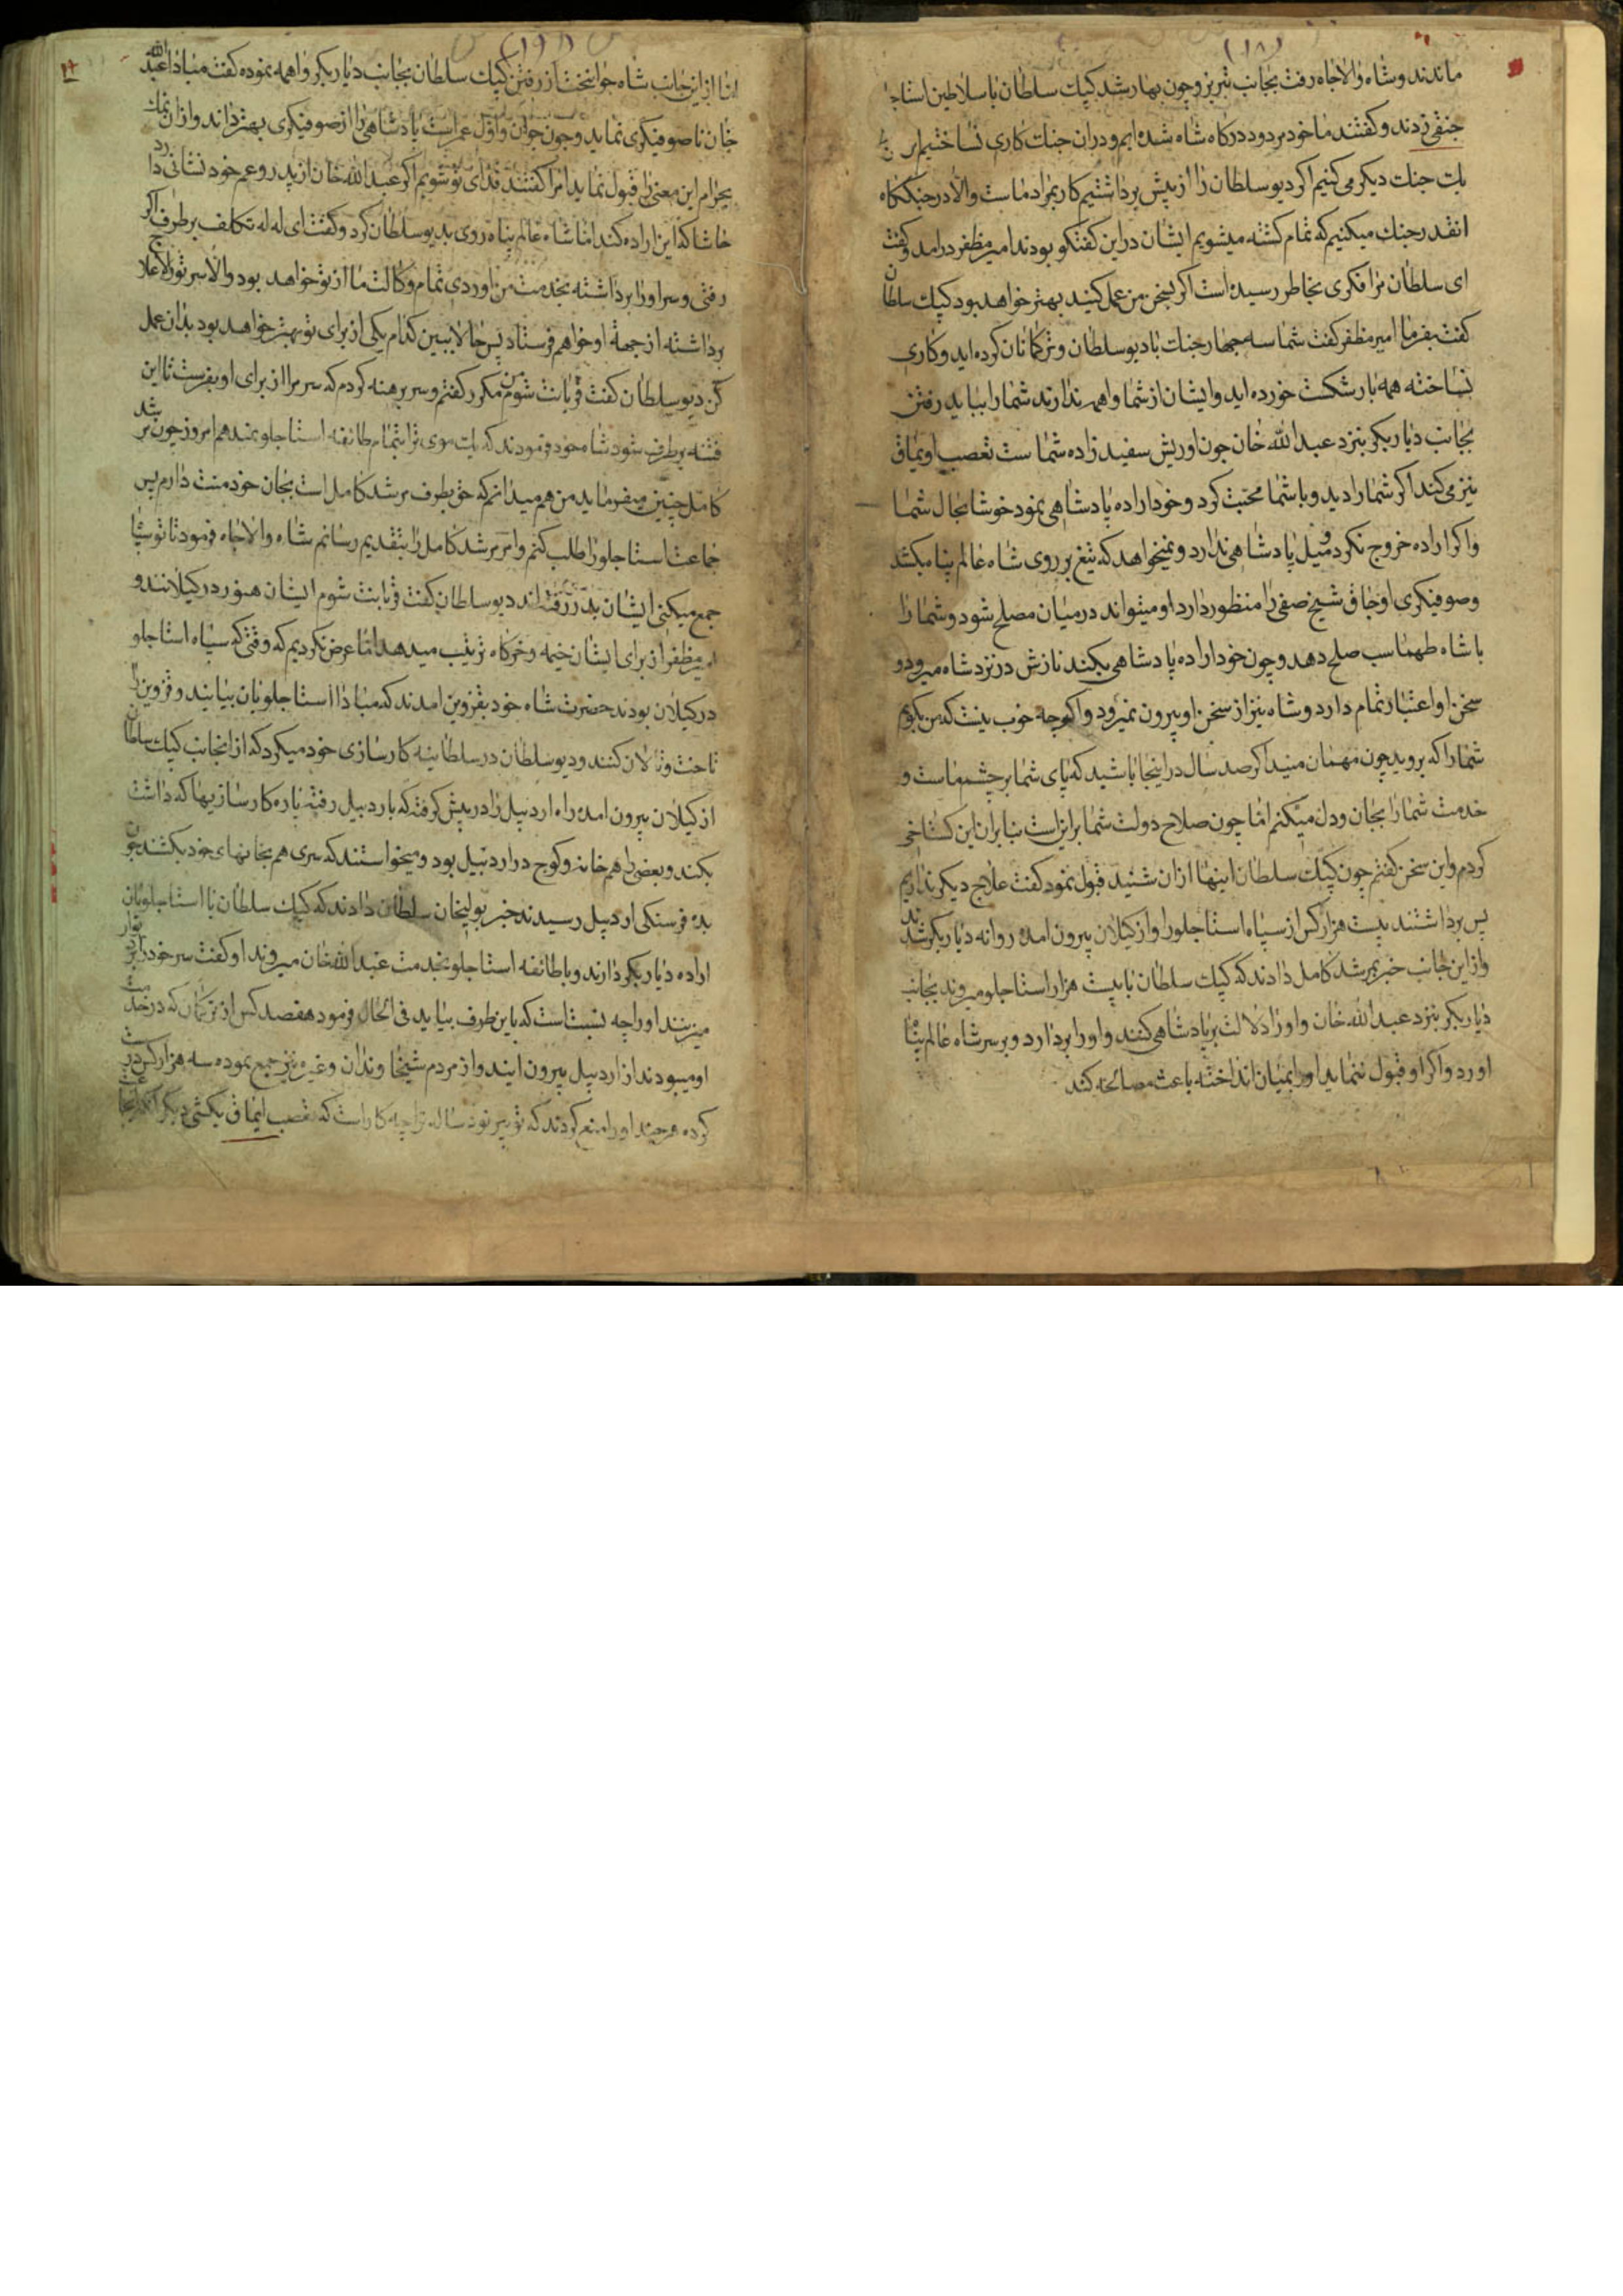 (۱۸)
ماندند و شاه والاجاه رفت بجانب تبریز و چون بهار شد کپک سلطان با سلاطین استاجلو
جنقی زدند و کفتند ما خود مردود درکاه شاه شده ایم و دران جنک کاری نساختیم
یک جنک دیکر می کنیم اکر دیو سلطان را از پیش برداشتیم کار بمراد ماست و الا در جنککاه
انقدر جنک میکنیم که تمام کشته میشویم ایشان در این کفتکو بودند امیر مظفر درامد و کفت
ای سلطان مرا فکری بخاطر رسیده است اکر بسخن من عمل کنید بهتر خواهد بود کپک سلطان
کفت بفرما امیر مظفر کفت شما سه چهار جنک با دیو سلطان و ترکمانان کرده اید و کاری
نساخته همه بار شکست خورده اید و ایشان از شما واهمه ندارند شما را بباید رفتن
بجانب دیاربکر بنزد عبدالله خان چون او ریش سفید زاده شماست تعصب اویماق
نیز می کند اکر شما را دید و با شما محبت کرد و خود اراده پادشاهی نمود خوشا بحال شما
و اکر اراده خروج نکرد و میل پادشاهی ندارد و نمیخواهد که تیغ بر روی شاه عالم پناه بکشد
و صوفیکری اوجاق شیخ صفی را منظور دارد او میتواند در میان مصلح شود و شما را
با شاه طهماسب صلح دهد و چون خود اراده پادشاهی بکند نازش در نزد شاه میرود و
سخن او اعتبار تمام دارد و شاه نیز از سخن او بیرون نمیرود و اکرچه خوب نیست که من بکویم
شما را که بروید چون مهمان منید اکر صد سال در اینجا باشید که پای شما بر چشم ماست و
خدمت شما را بجان و دل میکنم اما چون صلاح دولت شما براین است بنابران این کستاخی
کردم و این سخن کفتم چون کپک سلطان اینها را ازان شنید قبول نمود کفت علاج دیکر نداریم
پس برداشتند بیست هزار کس از سپاه استاجلو را و از کیلان بیرون امده روانه دیاربکر شدند
و از این جانب خبر بمرشد کامل دادند که کپک سلطان با بیست هزار استاجلو میروند بجانب
دیاربکر بنزد عبدالله خان و او را دلالت بر پادشاهی کنند و او را بردارد و بر سر شاه عالم پناه
اورد و اکر او قبول ننماید او را بمیان انداخته باعث مصالحه کند
(۱۹)
اما از این جانب شاه جوانبخت از رفتن کپک سلطان بجانب دیاربکر واهمه نموده کفت مبادا عبدالله
خان ناصوفیکری نماید و چون جوان و اول عمر است پادشاهی را از صوفیکری بهتر داند و ازان نمک
بحرام این معنی را قبول نماید امرا کفتند فدای تو شویم اکر عبدالله خان از پدر و عم خود نشانی دارد
حاشا که این اراده کند اما شاه عالم پناه روی بدیو سلطان کرد و کفت ای له له تکلف برطرف اکر
رفتی و سر او را برداشته بخدمت من اوردی تمام وکالت ما از تو خواهد بود و الا سر تو را لاعلاج
برداشته از جهة او خواهم فرستاد پس حالا ببین کدام یکی از برای تو بهتر خواهد بود بدان عمل
کن دیو سلطان کفت قربانت شوم من مکرر کفتم و سر برهنه کردم که سر مرا از برای او بفرست تا این
فتنه برطرف شود شاه خود فرمودند که یک موی ترا بتمام طائفه استاجلو نمیدهم امروز چون مرشد
کامل چنین میفرماید من هم میدانم که حق بطرف مرشد کامل است بجان خود منت دارم پس
جماعت استاجلو را طلب کنم و امر مرشد کامل را بتقدیم رسانم شاه والاجاه فرمود تا تو سپاه
جمع میکنی ایشان بدر رفته اند دیو سلطان کفت قربانت شوم ایشان هنوز در کیلانند و
امیر مظفر از برای ایشان خیمه و خرکاه ترتیب میدهد اما عرض نکردیم که وقتی که سپاه استاجلو
در کیلان بودند حضرت شاه خود بقزوین امدند که مبادا استاجلویان بیایند و قزوین را
تاخت و تالان کنند و دیو سلطان در سلطانیه کارسازی خود میکرد که از انجانب کپک سلطان
از کیلان بیرون امده راه اردبیل را در پیش کرفته که باردبیل رفته پاره کارسازیها که داشت
بکند و بعضی را هم خانه و کوچ در اردبیل بود و میخواستند که سری هم بخانهای خود بکشند چون
بده فرسنکی اردبیل رسیدند خبر بولیخان سلطان دادند که کپک سلطان با استاجلویان
اراده دیاربکر دارند و با طائفه استاجلو بخدمت عبدالله خان میروند او کفت سر خود را بدیوار
میزنند او را چه نسبت است که باین طرف بیاید فی الحال فرمود هفصد کس از ترکمان که در خدمت
او میبودند از اردبیل بیرون ایند و از مردم شیخاوندان و غیره نیز جمع نموده سه هزار کس
کرده هرچند او را منع کردند که تو پیر نود ساله ترا چه کار است که تعصب ایماق بکشی دیکر